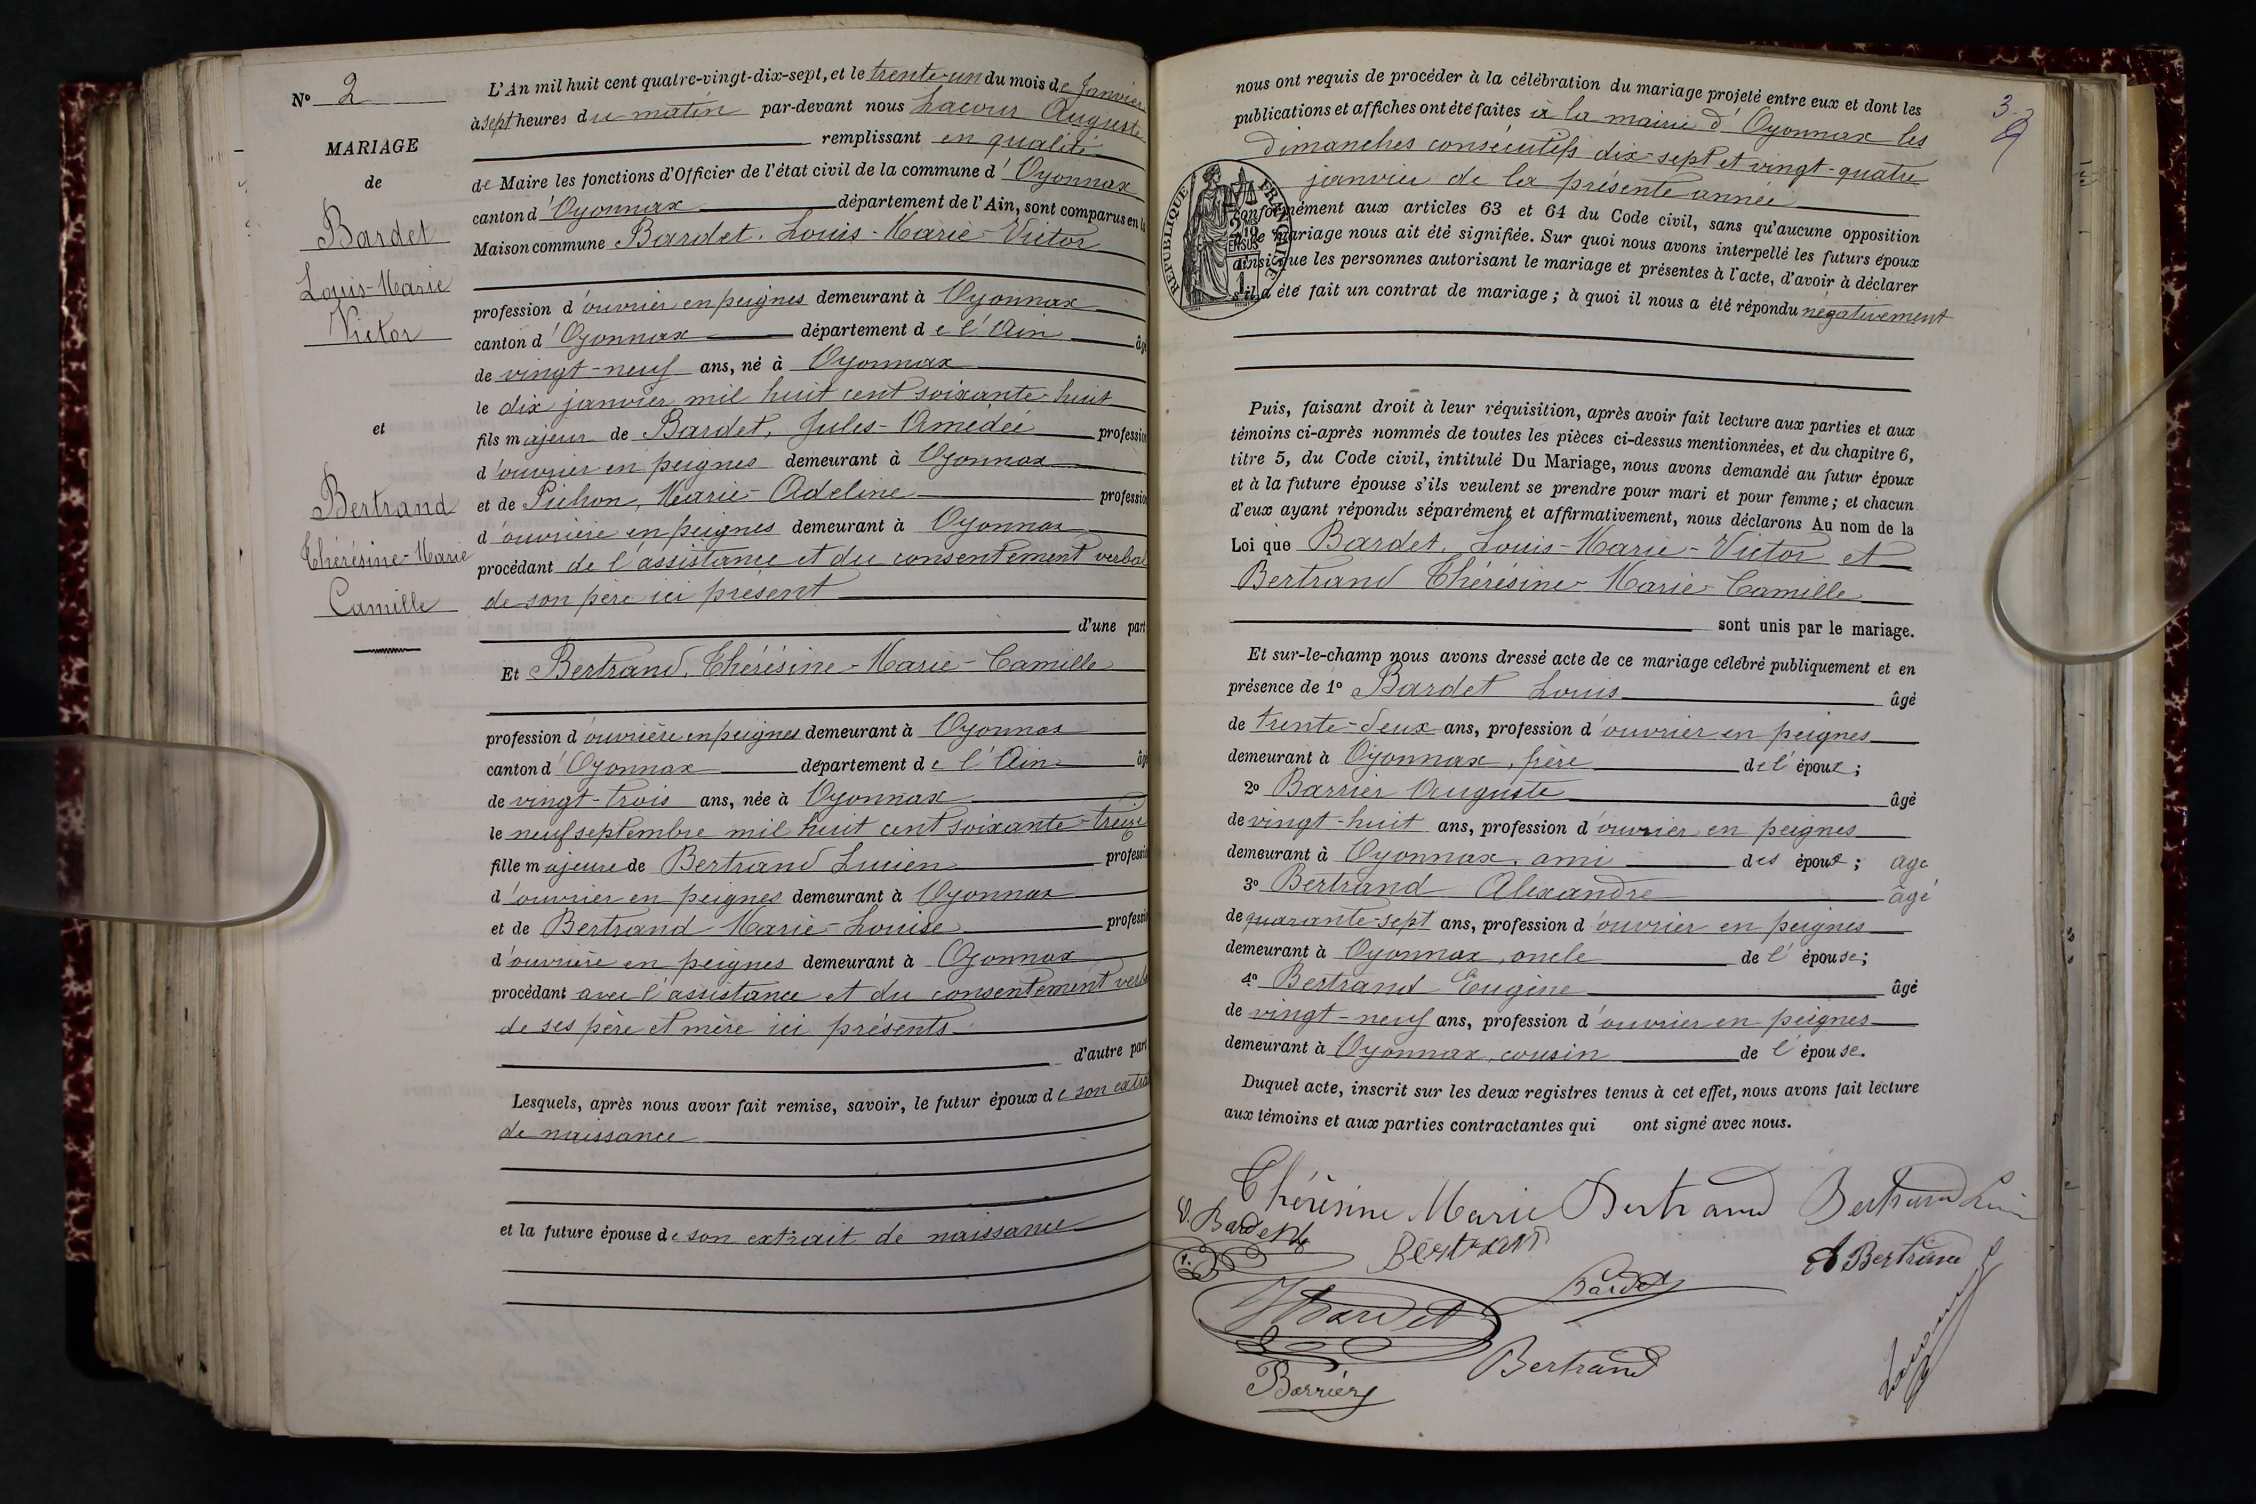 N° 2
MARIAGE
de
Bardet
Louis-Marie
Victor
et
Bertrand
Thérésine-Marie
Camille
L'An mil huit cent quatre-vingt-dix-sept, et le trente-un du mois de Janvier
à sept heures du matin par-devant nous Lacour Auguste
remplissant en qualité
de Maire les fonctions d'Officier de l'état civil de la commune d'Oyonnax
canton d'Oyonnax département de l'Ain, sont comparus en la
Maison commune Bardet, Louis-Marie-Victor
profession d'ouvrier en peignes demeurant à Oyonnax
canton d'Oyonnax département de l'Ain âgé
de vingt-neuf ans, né à Oyonnax
le dix janvier mil huit cent soixante-huit
fils majeur de Bardet, Jules-Amédée profession
d'ouvrier en peignes demeurant à Oyonnax
et de Pichon, Marie-Adeline profession
d'ouvrière en peignes demeurant à Oyonnax
procédant de l'assistance et du consentement verbal
de son père ici présent
d'une part
Et Bertrand, Thérésine-Marie-Camille
profession d'ouvrière en peignes demeurant à Oyonnax
canton d'Oyonnax département de l'Ain âgé
de vingt-trois ans, née à Oyonnax
le neuf septembre mil huit cent soixante-treize
fille majeure de Bertrand Lucien profession
d'ouvrier en peignes demeurant à Oyonnax
et de Bertrand Marie-Louise profession
d'ouvrière en peignes demeurant à Oyonnax
procédant avec l'assistance et du consentement verbal
de ses père et mère ici présents
d'autre part
Lesquels, après nous avoir fait remise, savoir, le futur époux de son extrait
de naissance
et la future épouse de son extrait de naissance
3
nous ont requis de procéder à la célébration du mariage projeté entre eux et dont les
publications et affiches ont été faites à la mairie d'Oyonnax les
dimanches consécutifs dix-sept et vingt-quatre
janvier de la présente année
conformément aux articles 63 et 64 du Code civil, sans qu'aucune opposition
mariage nous ait été signifiée. Sur quoi nous avons interpellé les futurs époux
ainsi que les personnes autorisant le mariage et présentes à l'acte, d'avoir à déclarer
s'il a été fait un contrat de mariage; à quoi il nous a été répondu négativement
RÉPUBLIQUE FRANÇAISE
2/10 EN SUS
1
Puis, faisant droit à leur réquisition, après avoir fait lecture aux parties et aux
témoins ci-après nommés de toutes les pièces ci-dessus mentionnées, et du chapitre 6,
titre 5, du Code civil, intitulé Du Mariage, nous avons demandé au futur époux
et à la future épouse s'ils veulent se prendre pour mari et pour femme; et chacun
d'eux ayant répondu séparément et affirmativement, nous déclarons Au nom de la
Loi que Bardet, Louis-Marie-Victor et
Bertrand Thérésine-Marie-Camille
sont unis par le mariage.
Et sur-le-champ nous avons dressé acte de ce mariage célébré publiquement et en
présence de 1° Bardet Louis âgé
de trente-deux ans, profession d'ouvrier en peignes
demeurant à Oyonnax, frère de l'époux;
2° Barrier Auguste âgé
de vingt-huit ans, profession d'ouvrier en peignes
demeurant à Oyonnax, ami des époux; âgé
3° Bertrand Alexandre âgé
de quarante-sept ans, profession d'ouvrier en peignes
demeurant à Oyonnax, oncle de l'épouse;
4° Bertrand Eugène âgé
de vingt-neuf ans, profession d'ouvrier en peignes
demeurant à Oyonnax, cousin de l'épouse.
Duquel acte, inscrit sur les deux registres tenus à cet effet, nous avons fait lecture
aux témoins et aux parties contractantes qui ont signé avec nous.
Thérésine Marie Bertrand Bertrand
V. Bardet
Bertrand
A Bertrand
Bardet
J Bardet
Bertrand
Barrier
Lacour